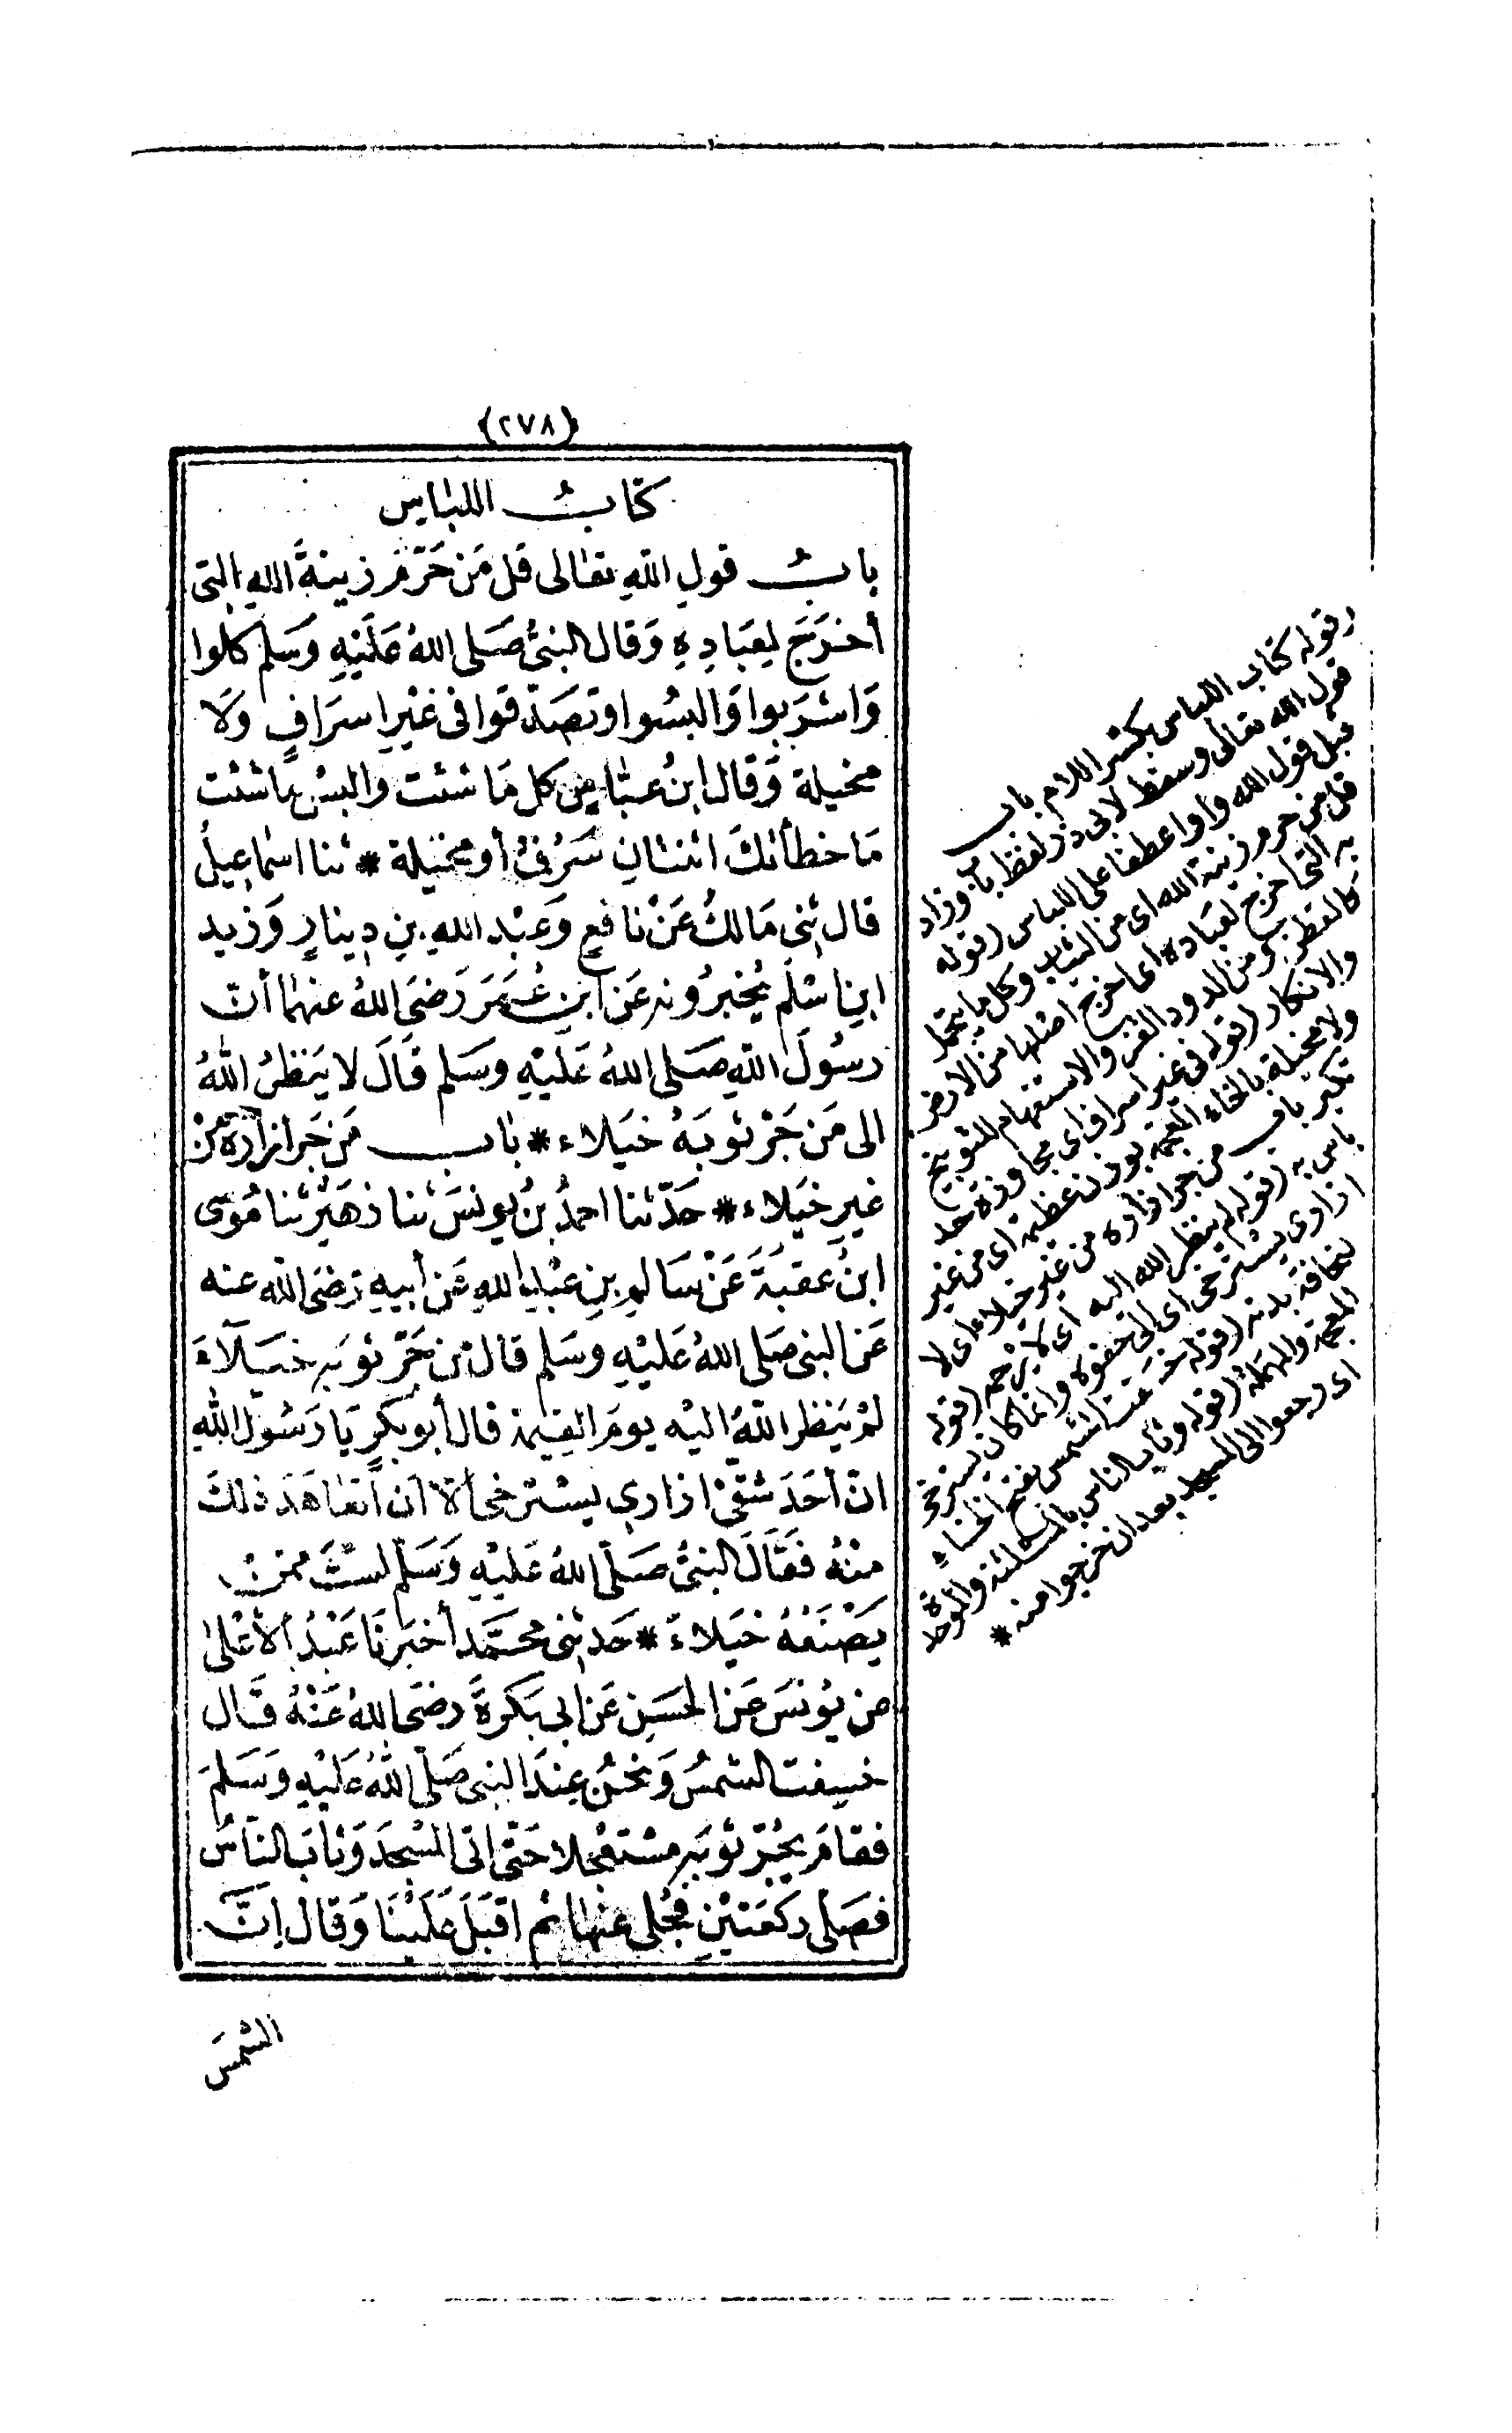 (٢٧٨)
كتابُ اللباس
بابُ قولِ اللهِ تعالى قل مَن حَرَّمَ زينةَ اللهِ التى
أخرَجَ لِعِبَادِهِ وَقال النبىُّ صَلى اللهُ عَلَيْهِ وَسَلم كلوا
وَاشرَبوا وَالبسُوا وتصَدّقوا فى غيْرِ اسرَافٍ وَلَا
مخيلة وَقال ابنُ عبّاسٍ كل مَا شئت والبسْ مَا شئت
مَا خطأتك اثنتانِ سَرَفٌ أو مخيلة * ثنا اسماعيلُ
قال ثنى مَالكٌ عَنْ نافعٍ وَعبْد اللهِ بنِ دِينارٍ وَزيد
ابنِ اسْلَم يُخبرُونه عَن ابنِ عُمَرَ رَضىَ اللهُ عنهما أنّ
رسُولَ اللهِ صَلى اللهُ عَليْهِ وسَلم قَالَ لا يَنظرُ اللهُ
الى مَن جَرّ ثوبَهُ خيَلاء * باب مَن جَرّ ازارَه مِنْ
غيرِ خيَلاء * حَدّثنا احمدُ بنُ يونسَ ثنا زهَيْرٌ ثنا مُوسَى
ابنُ عقبَةَ عَنْ سَالمِ بنِ عبْدِ اللهِ عَن أبيهِ رَضىَ الله عنه
عَن النبى صَلى اللهُ عَليْهِ وسَلم قال مَن جَرّ ثوبَه خيَلَآءَ
لمْ يَنظرِ اللهُ اليْه يومَ القيمة قال أبو بَكرٍ يَا رَسُولَ اللهِ
انّ أحَدَ شقىْ ازارِى يسْترخى الا أن أتعَاهَدَ ذلكَ
منْهُ فقَالَ النبىُّ صَلّى اللهُ عَليْهِ وَسَلّم لسْتَ ممنْ
يَصْنَعُهُ خيَلاءَ * حَدثنِى محَمَّد أخبرَنَا عَبْدُ الأعْلىٰ
عن يونسَ عَن الحسَنِ عَن ابى بَكرةَ رضىَ اللهُ عَنْهُ قال
خسِفت الشمسُ وَنحْنُ عِندَ النبى صَلّى اللهُ عَليْهِ وَسَلمَ
فقامَ يجُرّ ثوبَه مسْتعْجلا حَتّى اتى المسْجدَ وَثابَ الناسُ
فصَلى ركعَتيْنِ فجُلى عنها ثم اقبَلَ عَلَيْنَا وَقال إنَّ
الشمْسَ
(قوله كتاب اللباس بكسر اللام باب
قول الله تعالى وسقط لابى ذر لفظ باب وزاد
قبل قول الله واوا عطفا على اللباس (قوله
قل من حرم زينة الله اى من الثياب وكل ما يتجمل
به التى اخرج لعباده اى اخرج اصلها من الارض
كالقطن ومن الدود القز والاستفهام للتوبيخ
والانكار (قوله فى غير اسراف اى مجاوزة حد
ولا مخيلة بالخاء المعجمة بوزن عظيمة اى من غير
تكبر باب من جر ازاره من غير خيلاء اى لا
باس به (قوله لم ينظر الله اليه اى لا يرحمه (قوله
ازارى يسترخى اى الى حقوه وانما كان يسترخى
لنحافة بدنه (قوله خسفت الشمس بفتح الخاء
المعجمة والمهملة (قوله وثاب الناس بالمثلثة والموحدة
اى رجعوا الى المسجد بعد ان خرجوا منه *